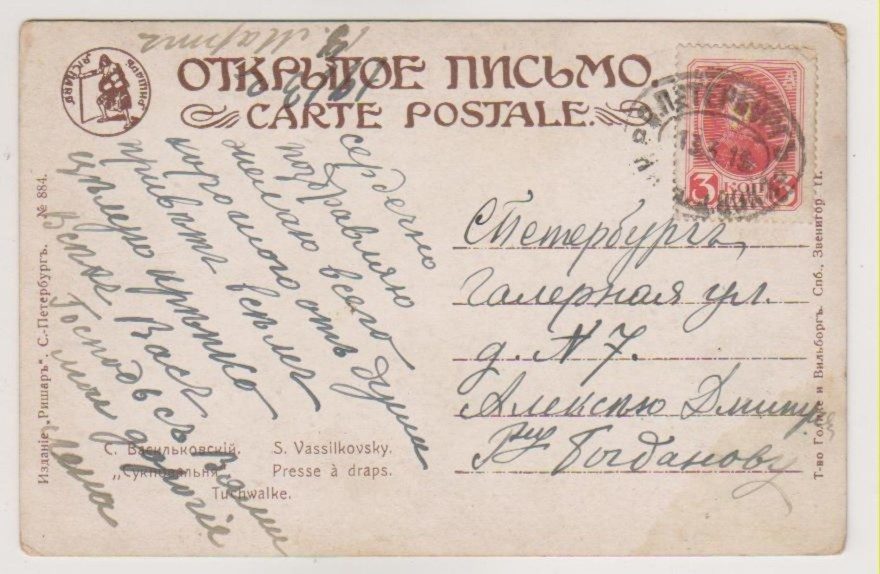 19 Марта
1913
РИШАРЪ
ОТКРЫТОЕ ПИСЬМО.
CARTE POSTALE.
3
КОП
С.Петербургъ
Галерная ул.
д. N 7.
Алексѣю Дмитр
Богданову
сердечно
поздравляю
желаю всего
хорошаго отъ души
привѣтъ всѣмъ
цѣлую крѣпко
Васъ
Господь съ Вами
мои дорогіе
С. Васильковскій.
„Сукновальня"
S. Vassilkovsky.
Presse à draps.
Tuchwalke.
Изданіе „Ришаръ". С.-Петербургъ. № 884.
Т-во Голике и Вильборгъ. Спб., Звенигор. 11.